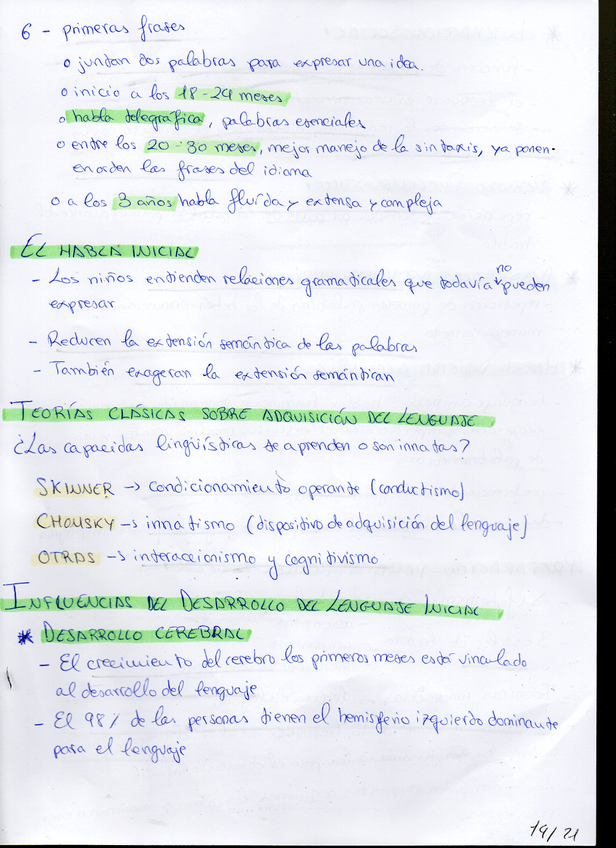 6 - primeras frases
o juntan dos palabras para expresar una idea.
o inicio a los 18-24 meses
o habla telegráfica, palabras esenciales
o entre los 20-30 meses, mejor manejo de la sintaxis, ya ponen
en orden las frases del idioma
o a los 3 años habla fluida y extensa y compleja
EL HABLA INICIAL
- Los niños entienden relaciones gramaticales que todavía no pueden
expresar
- Reducen la extensión semántica de las palabras
- También exageran la extensión semántican
TEORÍAS CLÁSICAS SOBRE ADQUISICIÓN DEL LENGUAJE
¿Las capacidas lingüísticas se aprenden o son innatas?
SKINNER -> condicionamiento operante (conductismo)
CHOMSKY -> innatismo (dispositivo de adquisición del lenguaje)
OTRAS -> interaccionismo y cognitivismo
INFLUENCIAS DEL DESARROLLO DEL LENGUAJE INICIAL
* DESARROLLO CEREBRAL
- El crecimiento del cerebro los primeros meses está vinculado
al desarrollo del lenguaje
- El 98% de las personas tienen el hemisferio izquierdo dominante
para el lenguaje
19/21